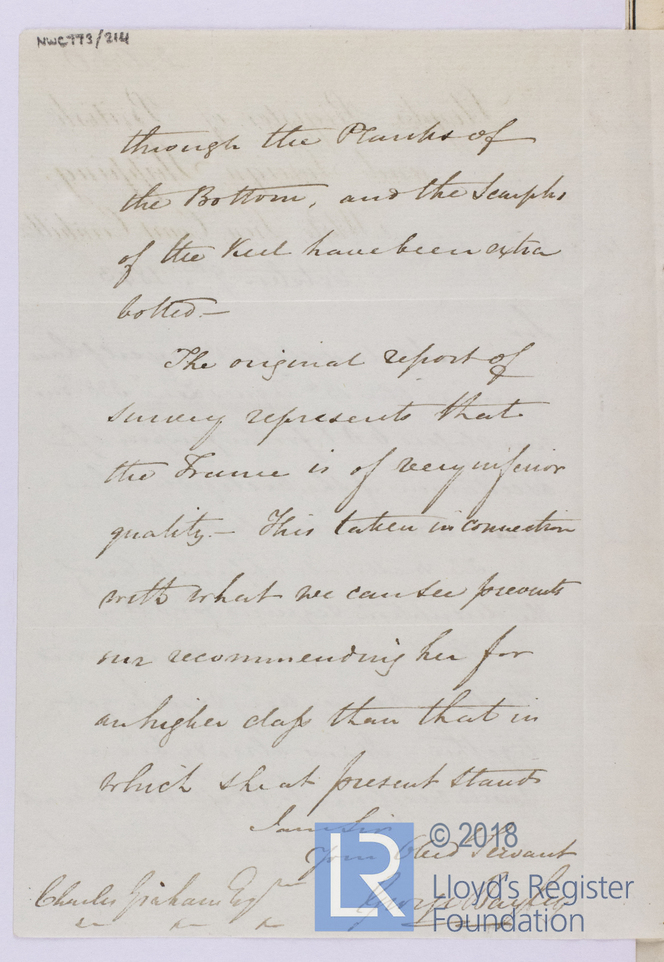 NWC773/214
through the Planks of
the Bottom, and the Scarphs
of the Keel have been extra
bolted.—
The original report of
survey represents that
the Frame is of very inferior
quality.— This taken in connection
with what we can see prevents
our recommending her for
an higher class than that in
which she at present stands
I am Sir
Your Obed Servant
George Bayley
Charles Graham Esqre
LR
© 2018
Lloyd's Register
Foundation